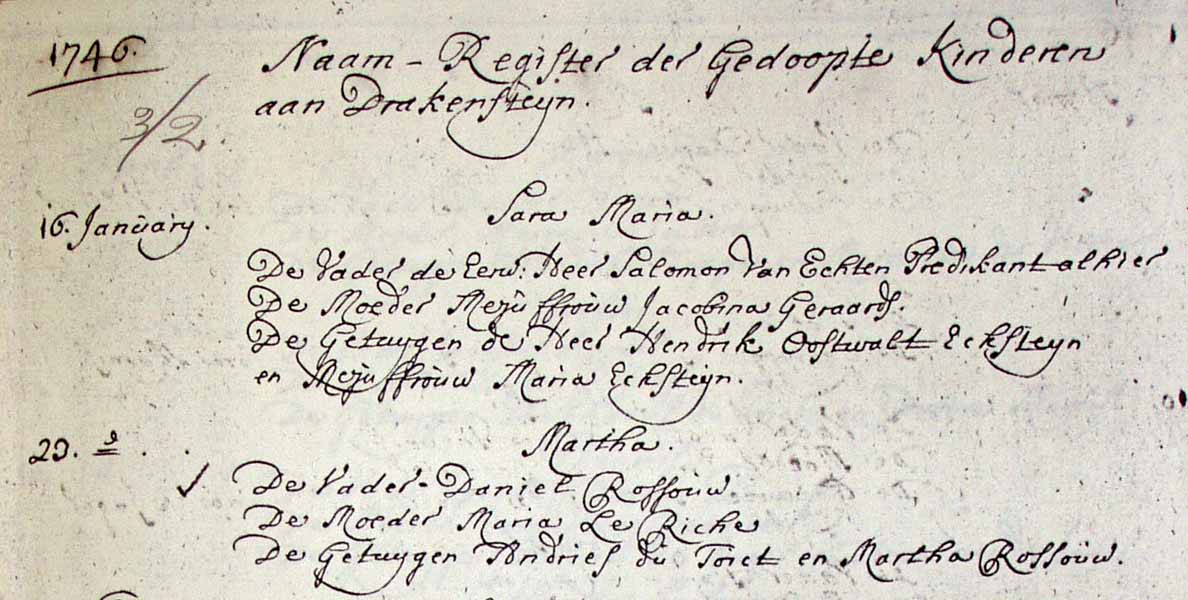 1746. Naam-Register der Gedoopte Kinderen
aan Drakensteyn.
2/2
16. January. Sara Maria.
De Vader de Eerw: Heer Salomon van Echten Predikant alhier
De Moeder Mejuffrouw Jacobina Geraards.
De Getuygen de Heer Hendrik Oostwalt Ecksteyn
en Mejuffrouw Maria Ecksteyn.
23. d°. . Martha.
De Vader Daniel Rossouw
De Moeder Maria Le Riche
De Getuygen Andries du Toict en Martha Rossouw.